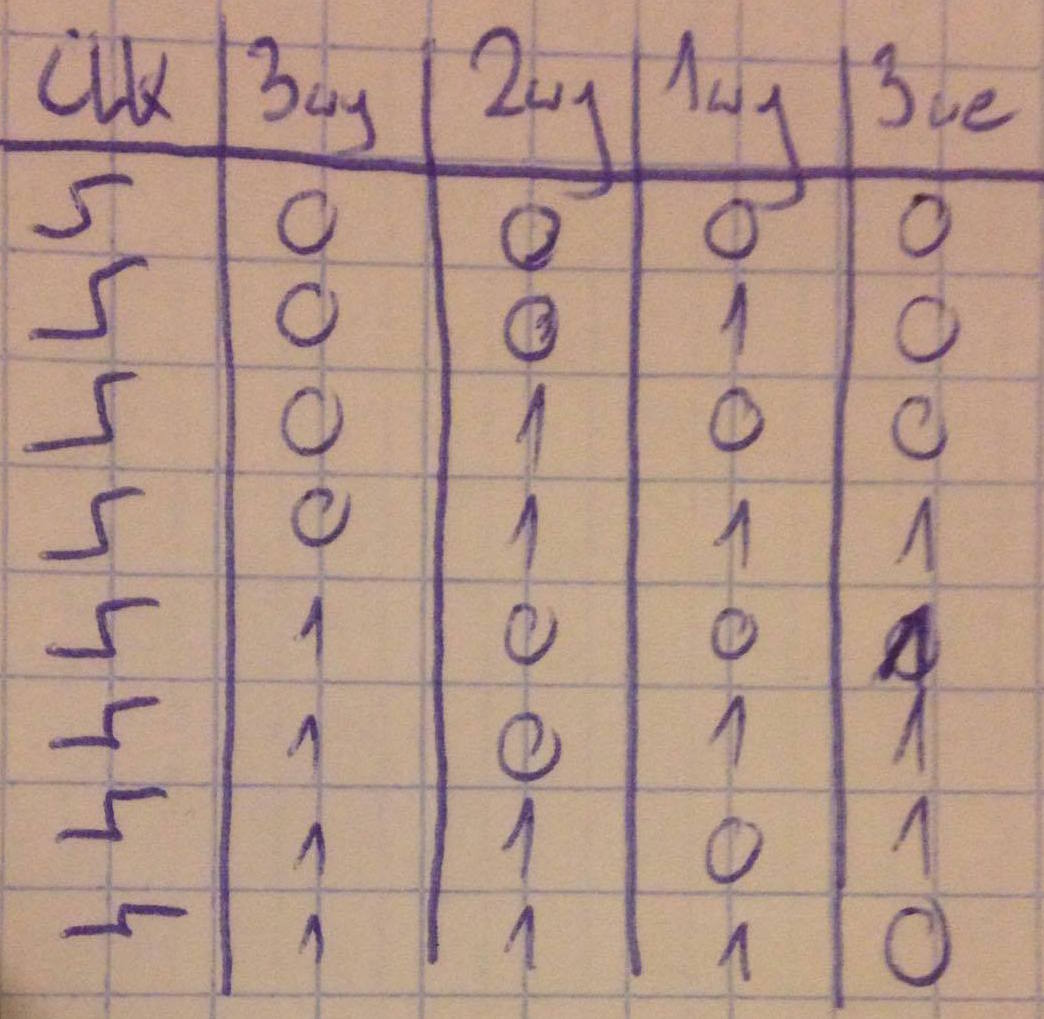 Clk 3wy 2wy 1wy 3we
0 0 0 0
0 0 1 0
0 1 0 0
0 1 1 1
1 0 0 1
1 0 1 1
1 1 0 1
1 1 1 0